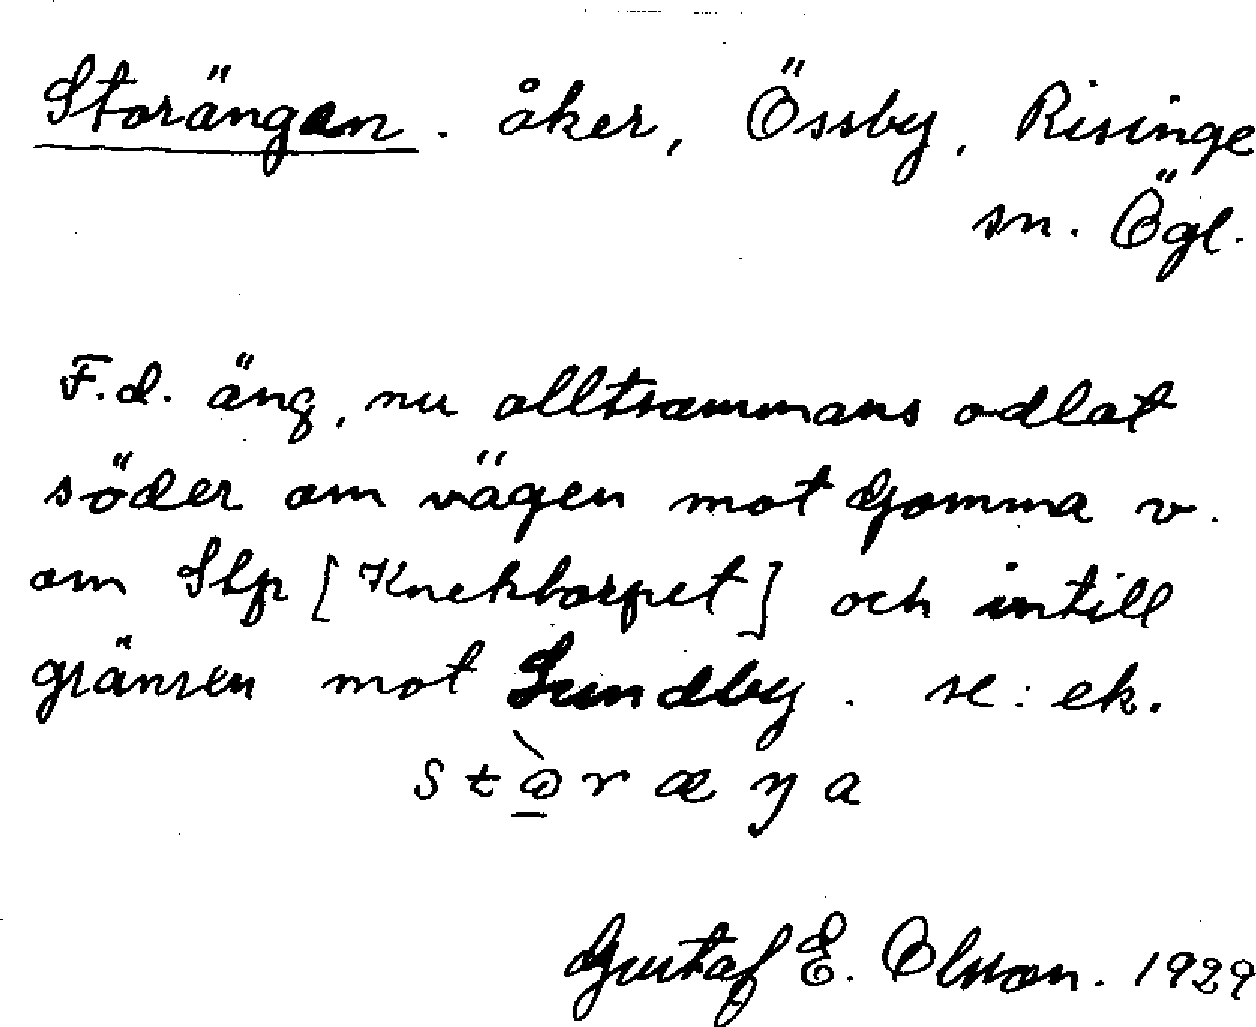 Storängen. åker, Össby, Risinge
sn. Ögl.
F.d. äng, nu alltsammans odlat
söder om vägen mot Gomma v.
om Slp [Knektorpet] och intill
gränsen mot Lundby. se: ek.
Gustaf E. Olsson. 1929